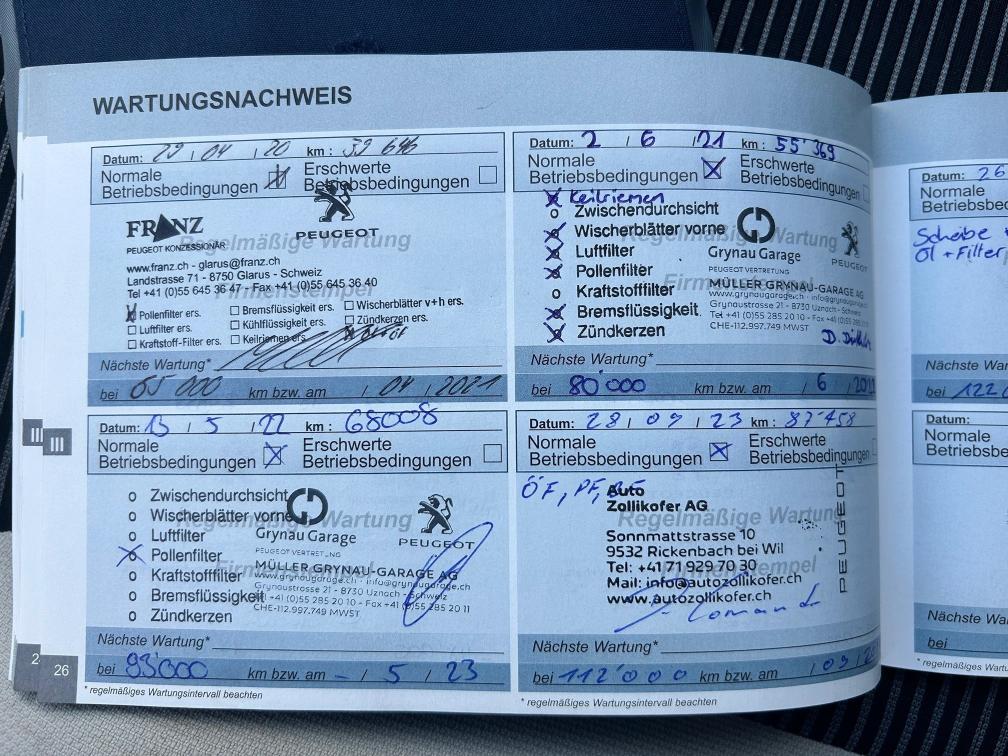 WARTUNGSNACHWEIS
Datum: 29 / 04 / 20 km: 39 646
Normale
Betriebsbedingungen
Erschwerte
Betriebsbedingungen
FRANZ
PEUGEOT KONZESSIONÄR
PEUGEOT
Regelmäßige Wartung
www.franz.ch - glarus@franz.ch
Landstrasse 71 - 8750 Glarus - Schweiz
Tel +41 (0)55 645 36 47 - Fax +41 (0)55 645 36 40
Firmenstempel
Pollenfilter ers.
Bremsflüssigkeit ers.
Wischerblätter v+h ers.
Luftfilter ers.
Kühlflüssigkeit ers.
Zündkerzen ers.
Kraftstoff-Filter ers.
Keilriemen ers.
Nächste Wartung*
bei 65 000 km bzw. am / 04 / 2021
Datum: 2 / 6 / 21 km: 55'369
Normale
Betriebsbedingungen
Erschwerte
Betriebsbedingungen
Keilriemen
Zwischendurchsicht
Wischerblätter vorne
Luftfilter
Pollenfilter
Kraftstofffilter
Bremsflüssigkeit
Zündkerzen
Regelmäßige Wartung
Firmenstempel
Grynau Garage
PEUGEOT VERTRETUNG
PEUGEOT
MÜLLER GRYNAU-GARAGE AG
www.grynaugarage.ch · info@grynaugarage.ch
Grynaustrasse 21 - 8730 Uznach - Schweiz
Tel +41 (0)55 285 20 10 - Fax +41 (0)55 285 20 11
CHE-112.997.749 MWST
Nächste Wartung*
bei 80'000 km bzw. am / 6 /
Datum: 13 / 5 / 22 km: 68008
Normale
Betriebsbedingungen
Erschwerte
Betriebsbedingungen
Zwischendurchsicht
Wischerblätter vorne
Luftfilter
Pollenfilter
Kraftstofffilter
Bremsflüssigkeit
Zündkerzen
Regelmäßige Wartung
Firmenstempel
Grynau Garage
PEUGEOT VERTRETUNG
PEUGEOT
MÜLLER GRYNAU-GARAGE AG
www.grynaugarage.ch · info@grynaugarage.ch
Grynaustrasse 21 - 8730 Uznach - Schweiz
Tel +41 (0)55 285 20 10 - Fax +41 (0)55 285 20 11
CHE-112.997.749 MWST
Nächste Wartung*
bei 93'000 km bzw. am - / 5 / 23
Datum: 28 / 09 / 23 km: 87'458
Normale
Betriebsbedingungen
Erschwerte
Betriebsbedingungen
ÖF, PF,
Auto
Zollikofer AG
Regelmäßige Wartung
Sonnmattstrasse 10
9532 Rickenbach bei Wil
Tel: +41 71 929 70 30
Firmenstempel
Mail: info@autozollikofer.ch
www.autozollikofer.ch
PEUGEOT
Nächste Wartung*
bei 112'000 km bzw. am / 09 /
* regelmäßiges Wartungsintervall beachten
* regelmäßiges Wartungsintervall beachten
III
III
2
26
Datum: 26
Normale
Betriebsbed
Scheibe
Öl + Filter
Nächste War
bei 122
Datum:
Normale
Betriebsbed
Nächste
bei
* regelmäßiges